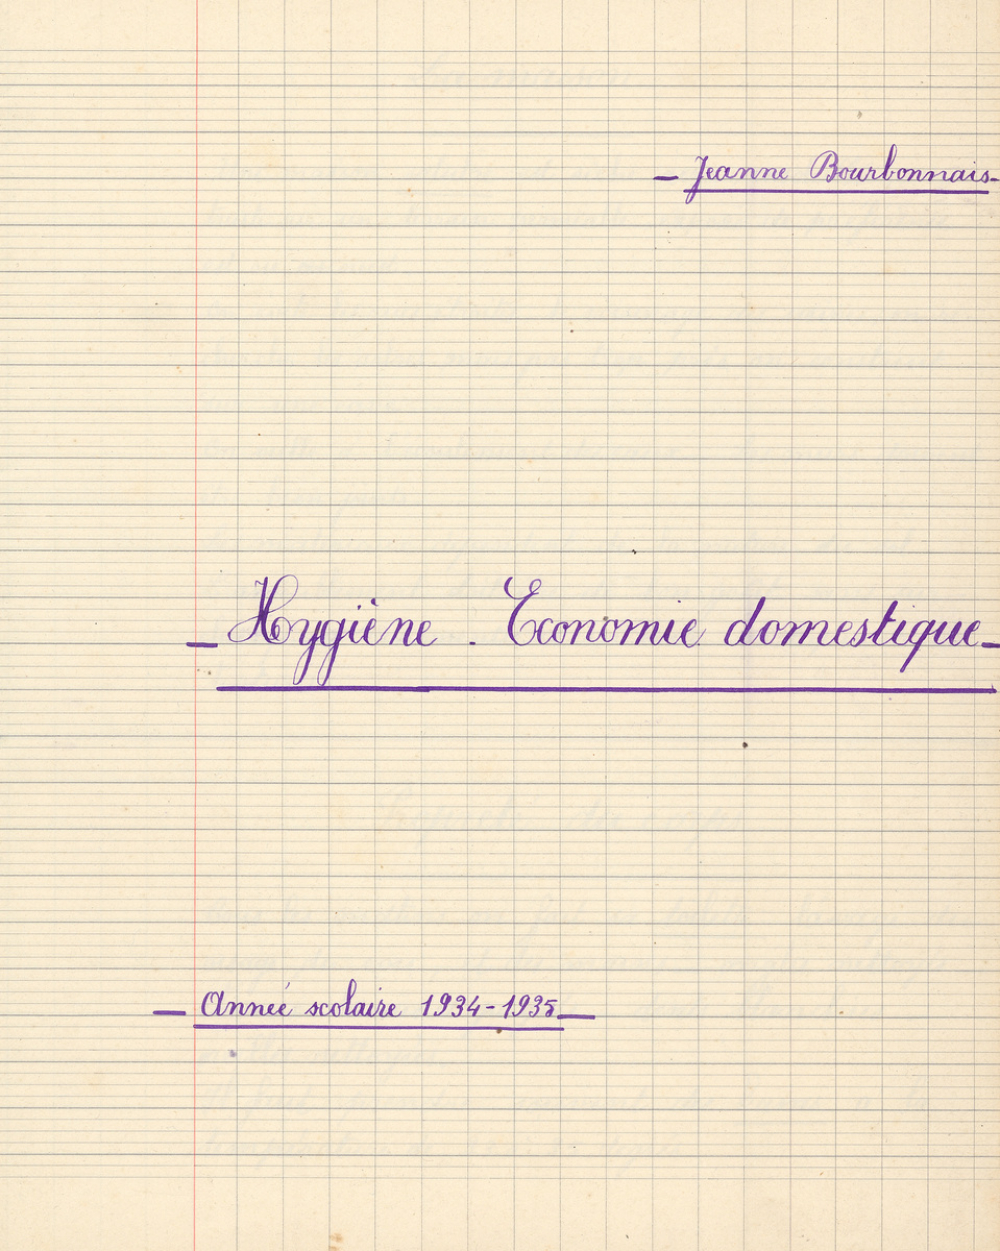 - Jeanne Bourbonnais -
- Hygiène . Economie domestique -
- Année scolaire 1934-1935 -